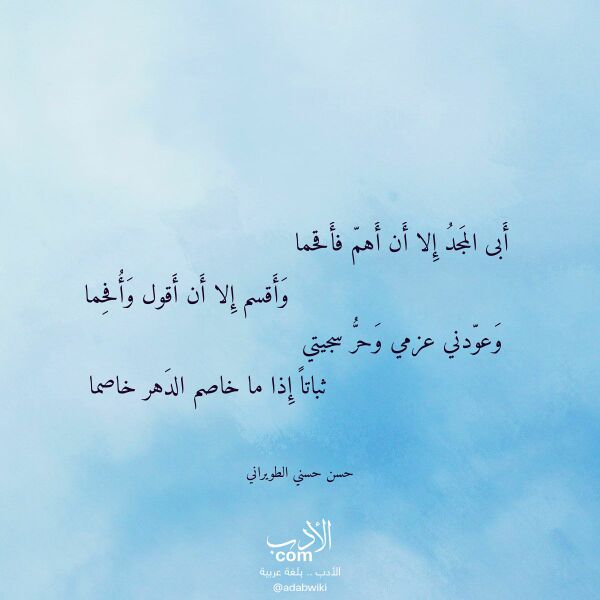 أَبى المَجدُ إِلا أَن أَهمّ فأَقحما
وَأَقسم إِلا أَن أَقول وَأُفحِما
وَعوّدني عزمي وَحرُّ سجيتي
ثباتاً إِذا ما خاصم الدَهر خاصما
حسن حسني الطويراني
الأدب
com
الأدب .. بلغة عربية
@adabwiki